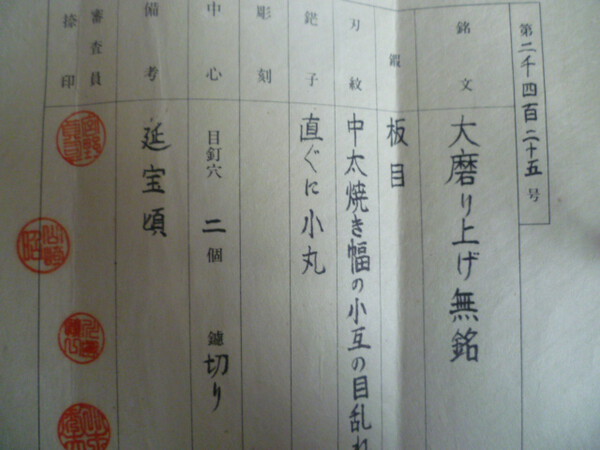 第二千四百二十五号
銘文 大磨り上げ無銘
鍜 板目
刃紋 中太焼き幅の小互の目乱れ
鋩子 直ぐに小丸
彫刻
中心 目釘穴 二個 鑢 切り
備考 延宝頃
審査員
捺印